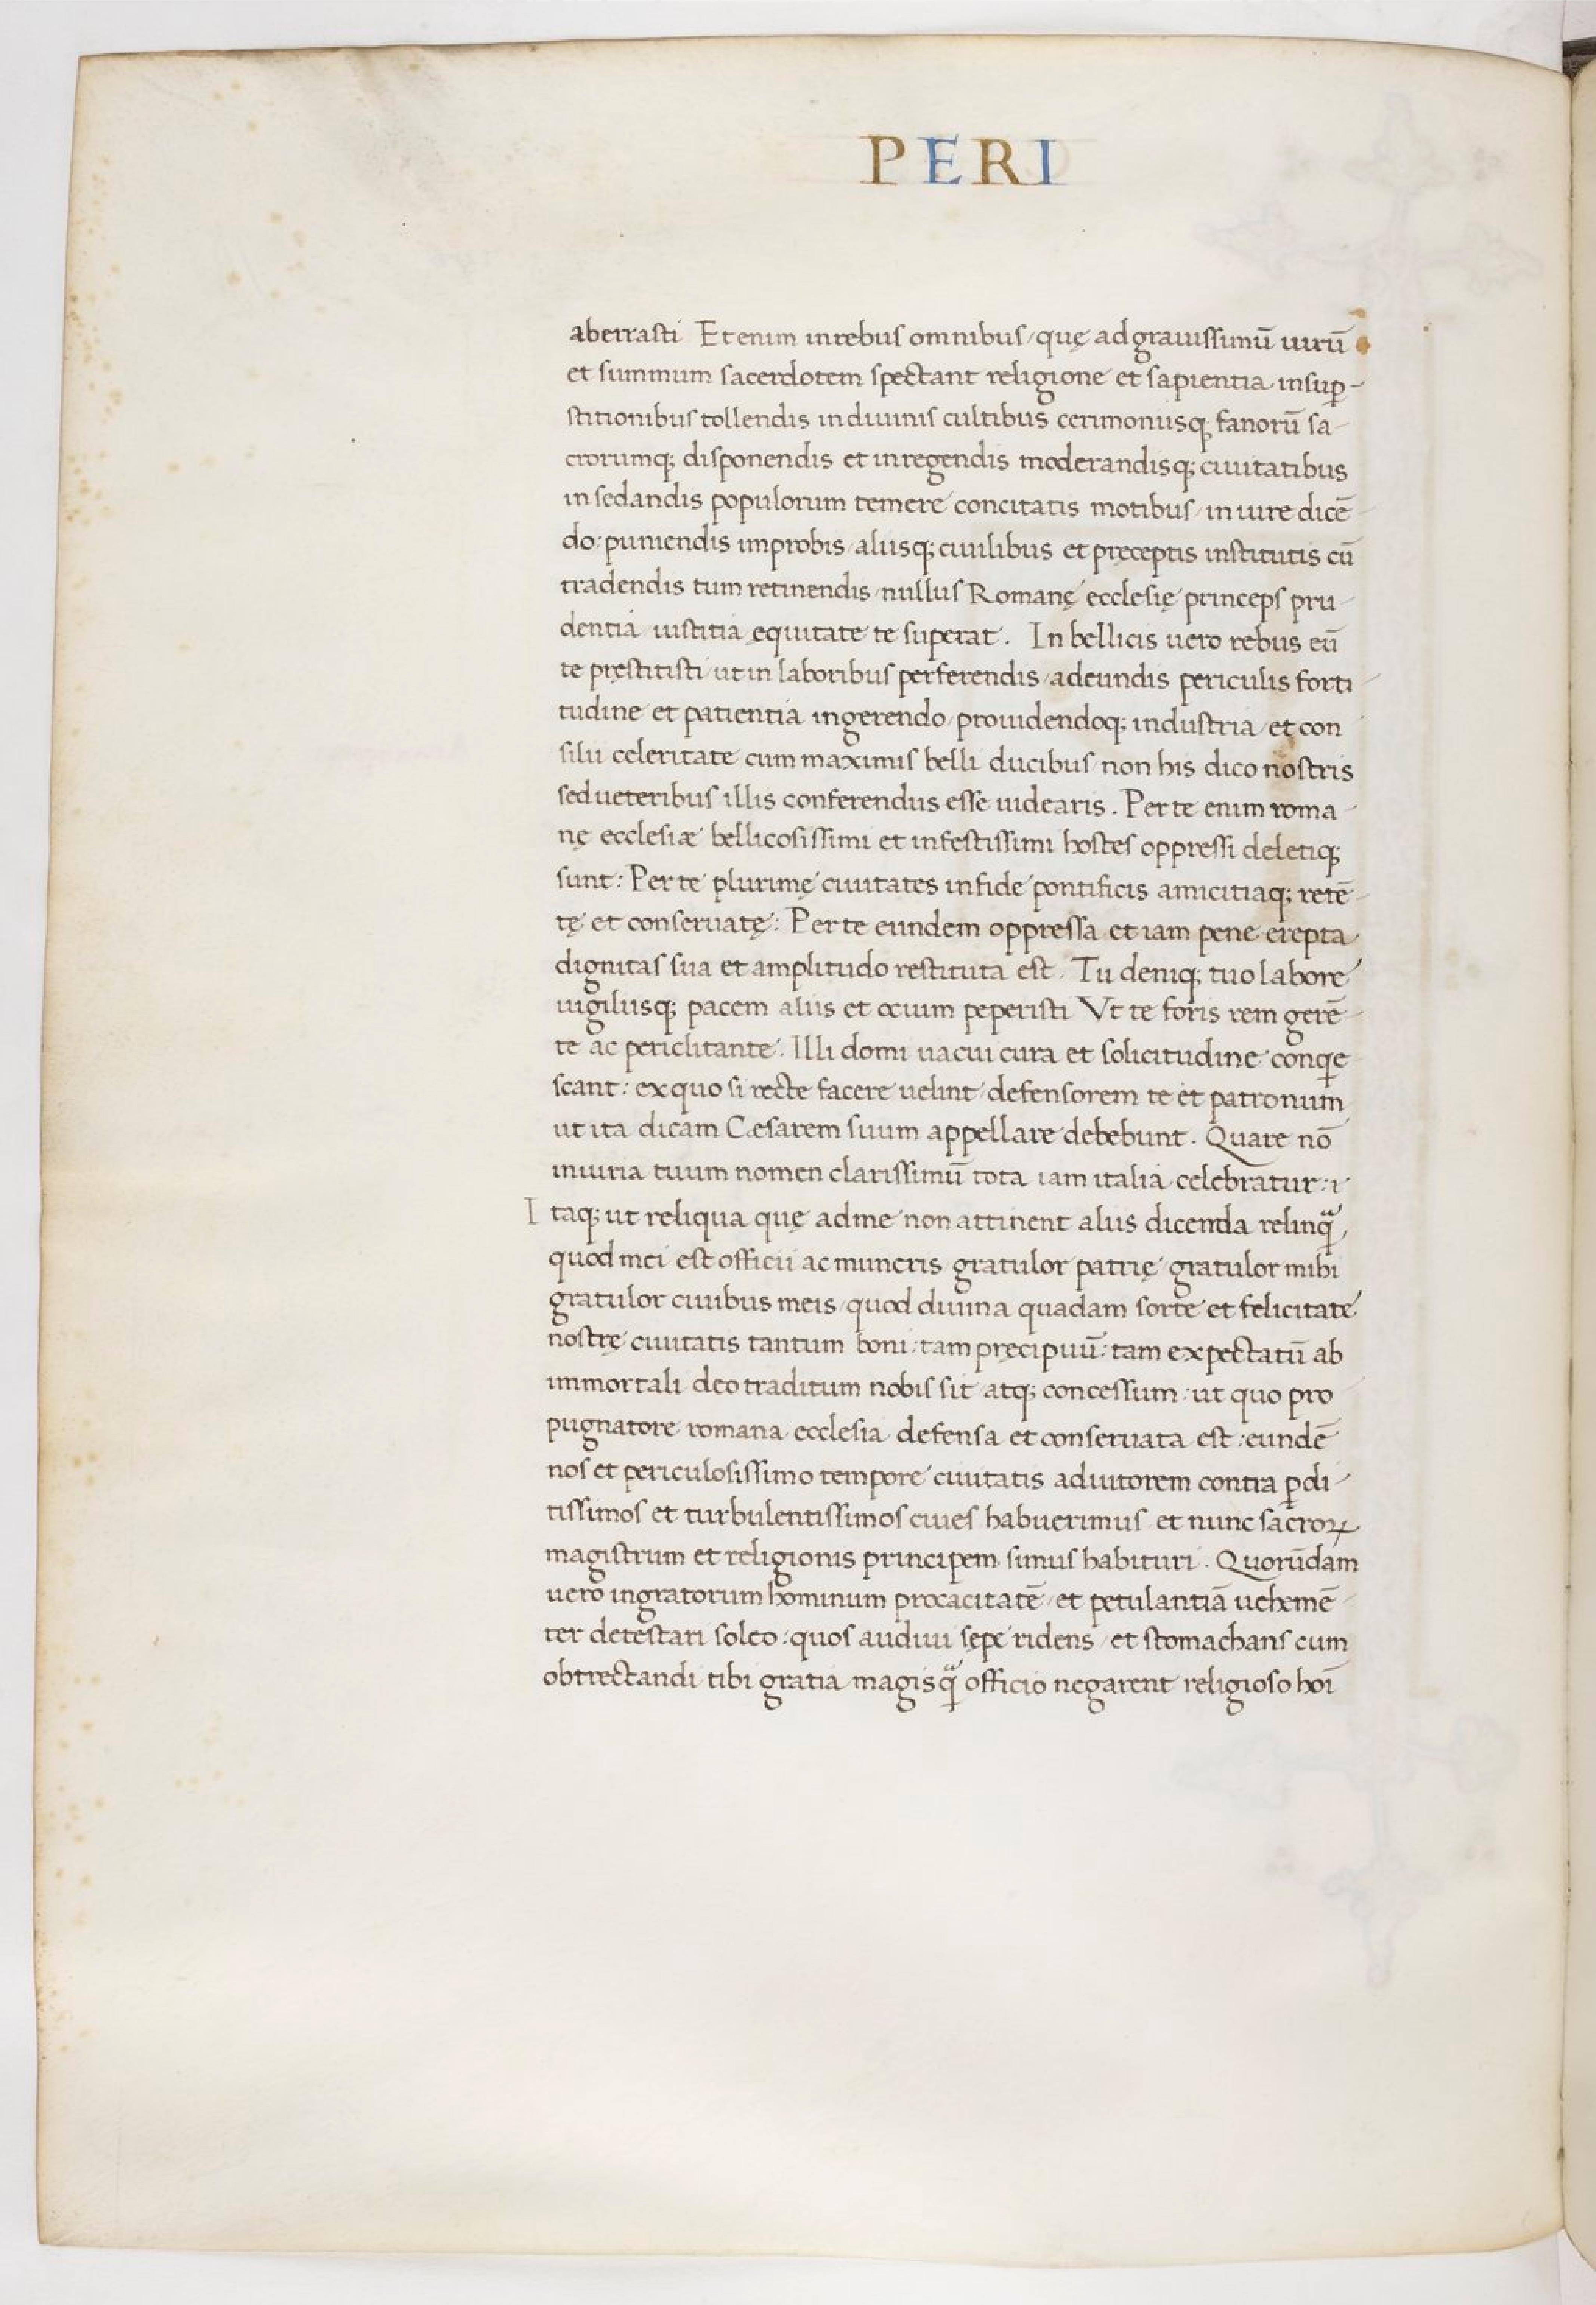 PERI
aberrasti Etenim in rebus omnibus / quę ad grauissimū uirū
et summum sacerdotem spectant religione et sapientia in sup̲-
stitionibus tollendis in diuinis cultibus cerimoniisq; fanorū sa-
crorumq; disponendis et in regendis moderandisq; ciuitatibus
in sedandis populorum temere concitatis motibus / in iure dicē-
do: puniendis improbis / aliisq; ciuilibus et pręceptis institutis cū
tradendis tum retinendis / nullus Romanę ecclesię princeps pru-
dentia iustitia ęquitate te superat. In bellicis uero rebus eū
te pręstitisti / ut in laboribus perferendis / adeundis periculis forti-
tudine et patientia in gerendo / prouidendoq; industria / et con
silii celeritate cum maximis belli ducibus / non his dico nostris
sed ueteribus illis conferendus esse uidearis. Per te enim roma-
nę ecclesiæ bellicosissimi et infestissimi hostes oppressi deletiq;
sunt: Per te plurimę ciuitates in fide pontificis amicitiaq; retē-
tę et conseruatę: Per te eundem oppressa et iam pene erepta
dignitas sua et amplitudo restituta est. Tu deniq; tuo labore
uigiliisq; pacem aliis et ocium peperisti Vt te foris rem gerē-
te ac periclitante. Illi domi uacui cura et solicitudine conq̲e
scant: ex quo si recte facere uelint / defensorem te et patronum
ut ita dicam Cæsarem suum appellare debebunt. Quare nō
iniuria tuum nomen clarissimū tota iam italia celebratur: i
I taq; ut reliqua quę ad me non attinent aliis dicenda relinqᷓ,
quod mei est officii ac muneris / gratulor patrię / gratulor mihi
gratulor ciuibus meis / quod diuina quadam sorte et felicitate
nostrę ciuitatis tantum boni: tam pręcipuū: tam expectatū ab
immortali deo traditum nobis sit atq; concessum: ut quo pro
pugnatore romana ecclesia defensa et conseruata est: eundē
nos et periculosissimo tempore ciuitatis adiutorem contra p̲di-
tissimos et turbulentissimos ciues habuerimus et nunc sacroꝝ
magistrum et religionis principem simus habituri. Quorūdam
uero ingratorum hominum procacitatē / et petulantiā uehemē-
ter detestari soleo: quos audiui sępe ridens / et stomachans cum
obtrectandi tibi gratia magis qᷓ officio negarent religioso hoī